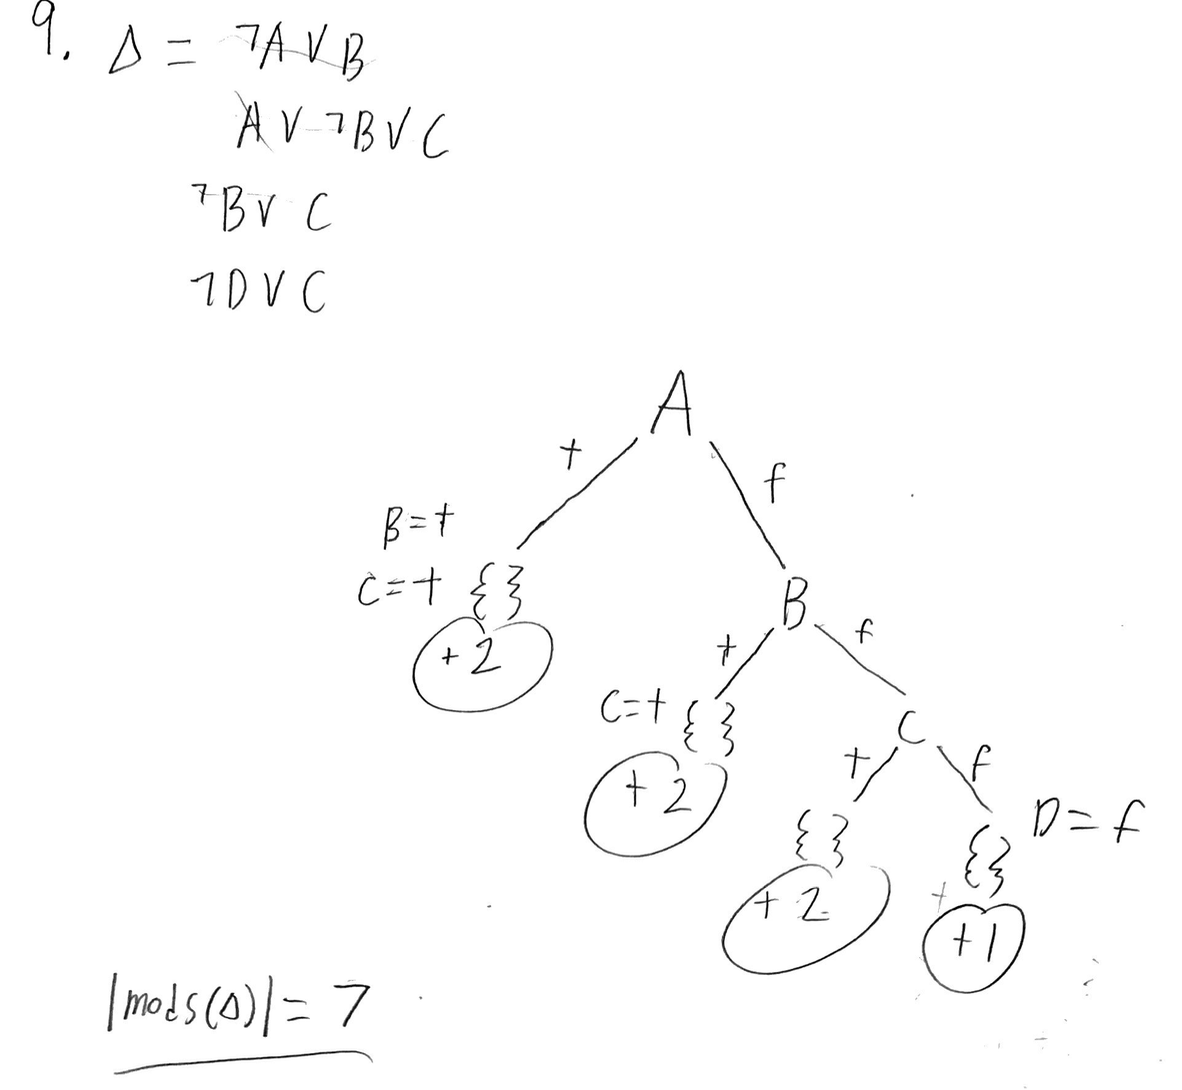 9. Δ = ¬A ∨ B
A ∨ ¬B ∨ C
¬B ∨ C
¬D ∨ C
A
t
f
B=t
C=t {}
+2
B
t
f
C=t {}
+2
C
t
f
{}
+2
D=f
{}
+1
|mods(Δ)| = 7